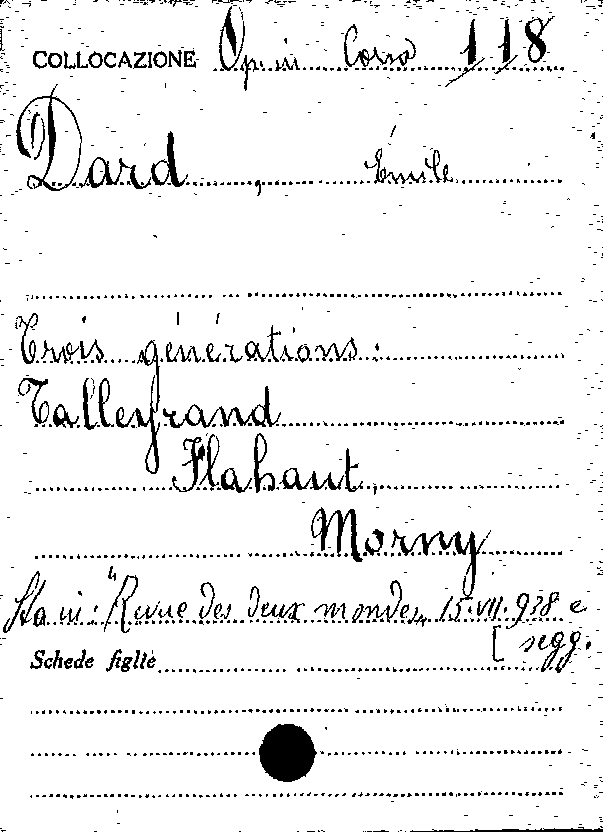 COLLOCAZIONE Op. in Corso 118
Dard, Émile
Trois générations:
Talleyrand
Flahaut,
Morny
Sta in: "Revue des deux mondes„ 15.VII.938 e
[segg.
Schede figlie